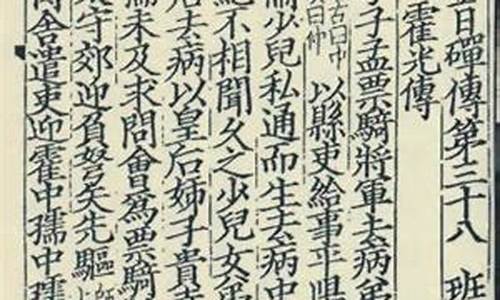 金日磾傳第三十八 班
霍光傳
字子孟票騎將軍去病弟
古曰中
讀曰仲
以縣吏給事平陽
衛少兒私通而生去病中
絕不相聞久之少兒女弟
后去病以皇后姊子貴幸
孺未及求問會爲票騎
太守郊迎負弩矢先驅
傳舍遣吏迎霍中孺中孺